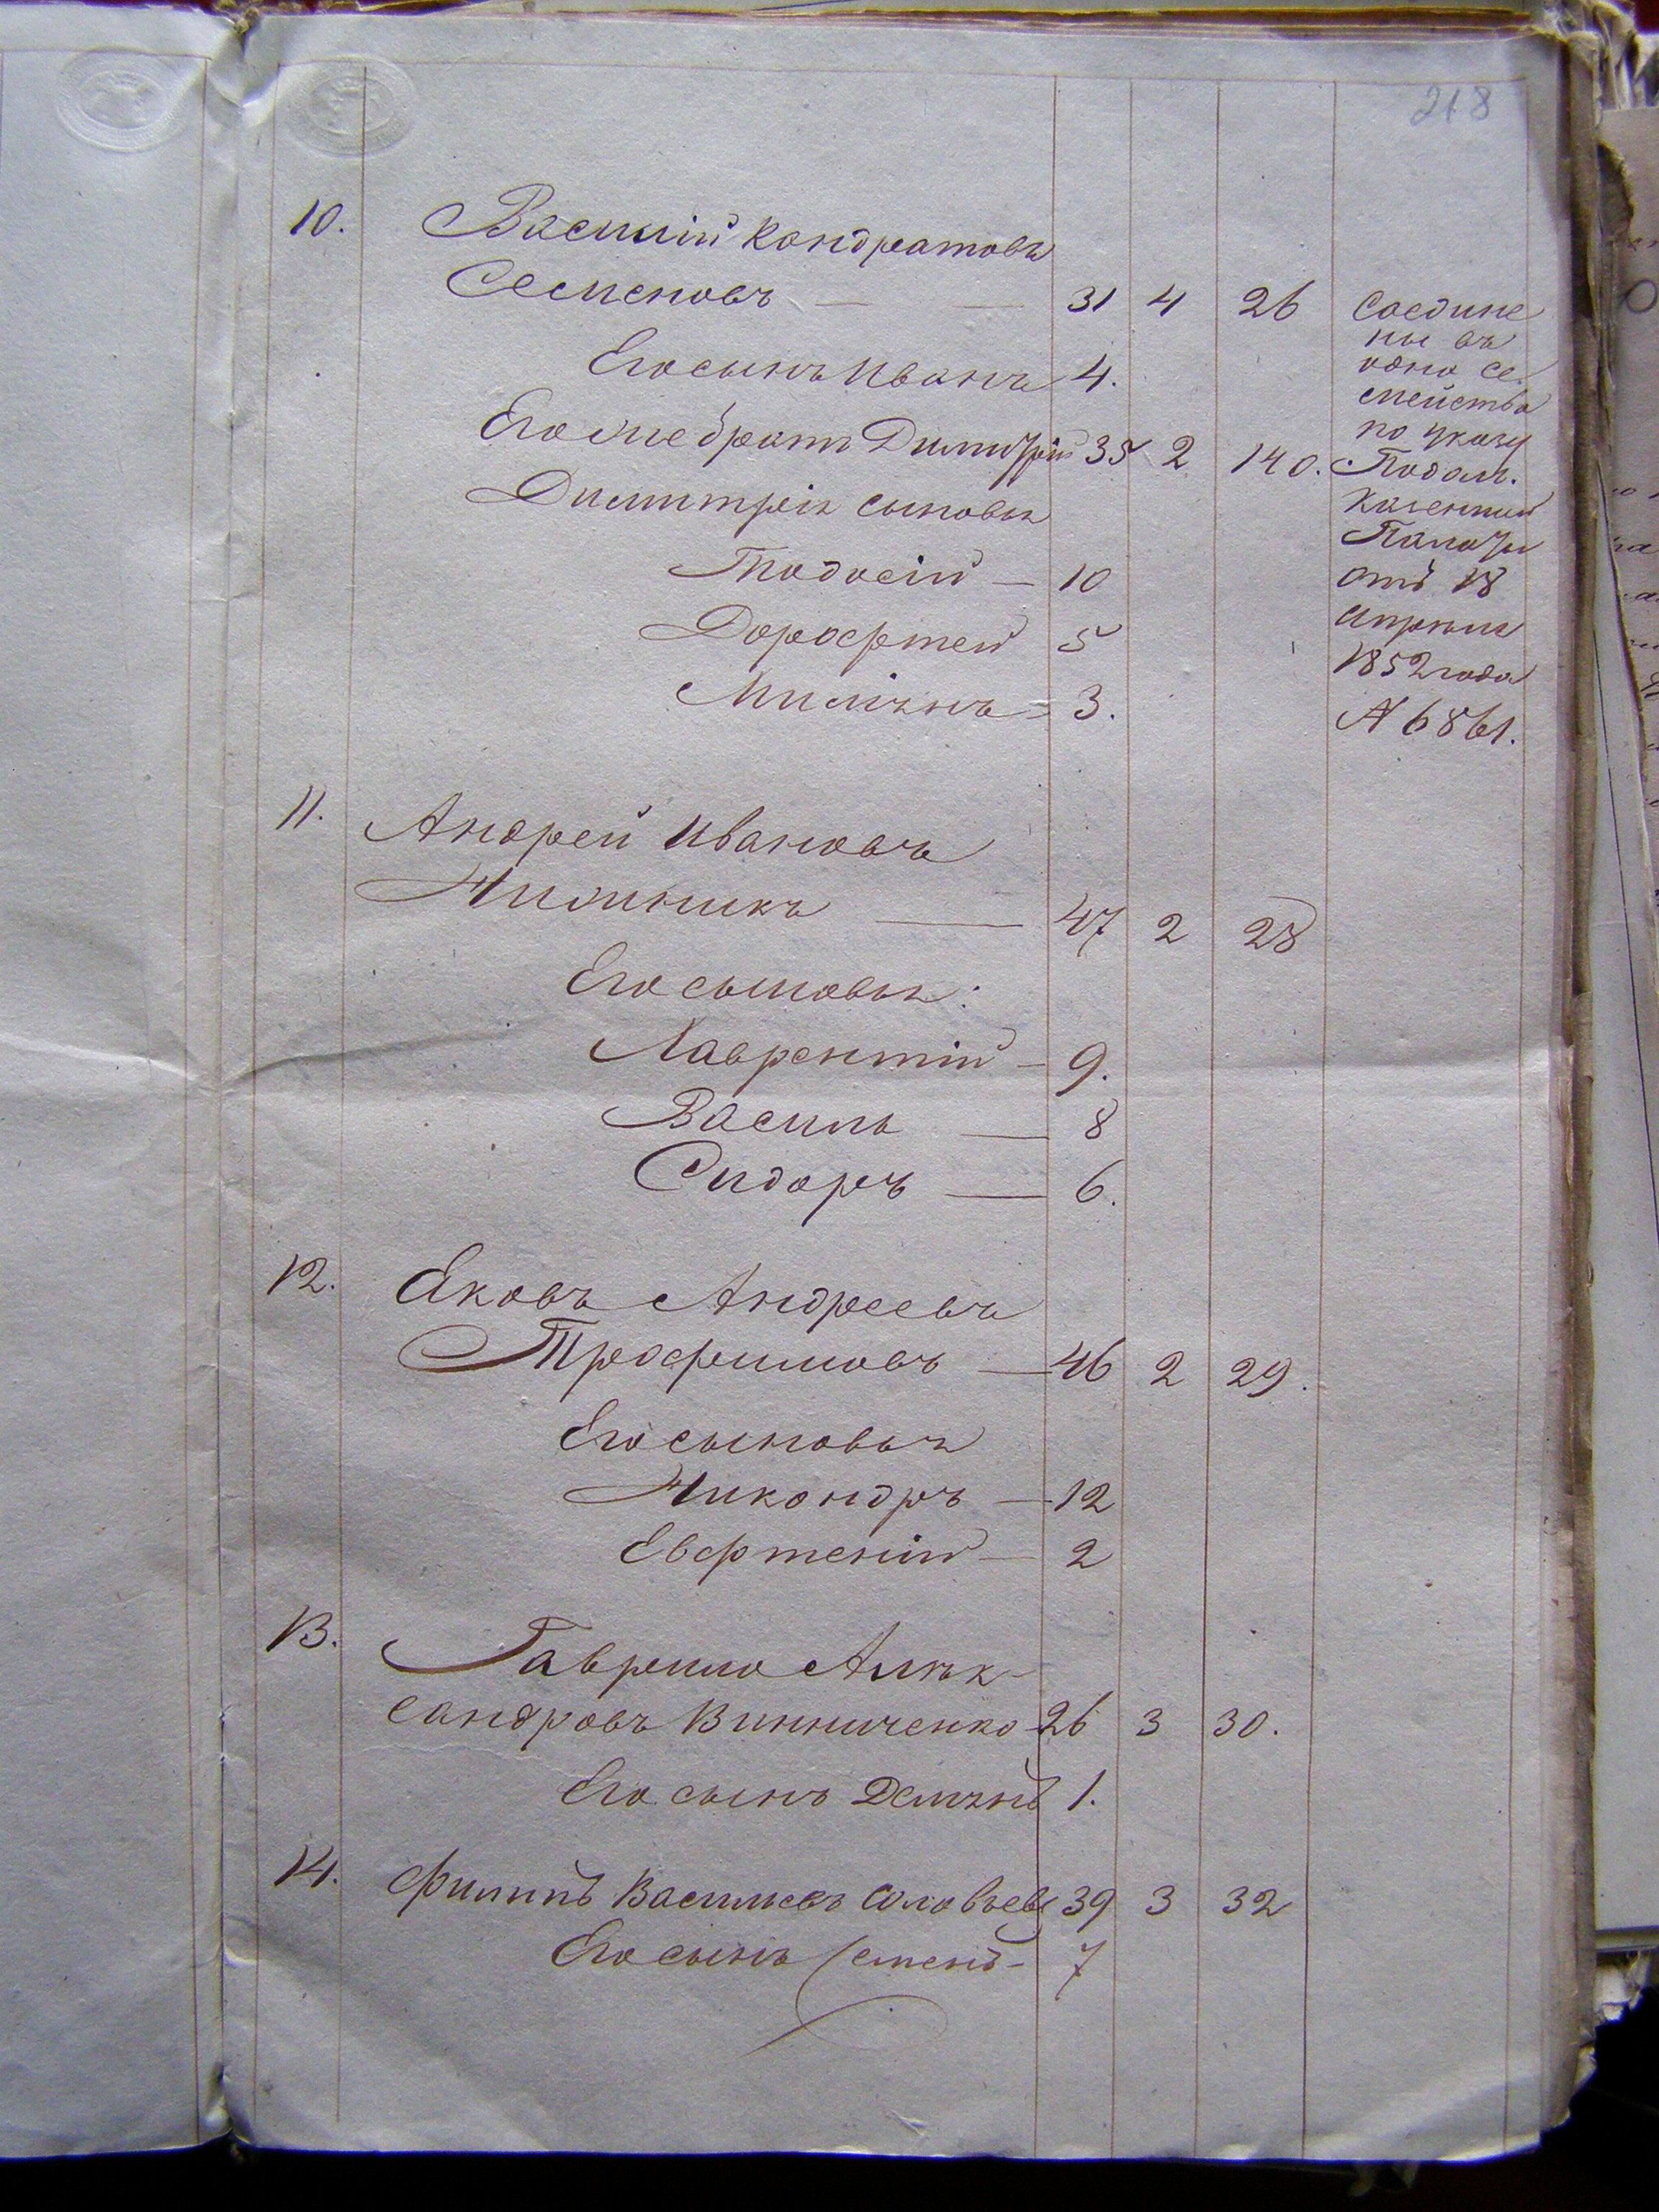 218
10. Василій Кондратовъ
Семеновъ — — 31 4 26
Его сынъ Иванъ 4.
Его же братъ Димитрій 35 2 140.
Димитрія сыновья
Тодосій — 10
Дорофтей 5
Миліянъ 3.
Соедине
ны въ
одно се
мейство
по указу
Подол.
Казенной
Палаты
отъ 18
Апреля
1852 года
N 6861.
11. Андрей Ивановъ
— 47 2 28
Его сыновья:
Лаврентій — 9.
Василь — 8
Сидоръ — 6.
12. Яковъ Андреевъ
Трофимовъ — 46 2 29.
Его сыновья
Никондръ — 12
Евфтеній — 2
13. Гаврило Алек-
сандровъ Винниченко 26 3 30.
Его сынъ Демянъ 1.
14. Филипъ Васильевъ Соловьевъ 39 3 32
Его сынъ Семенъ — 7